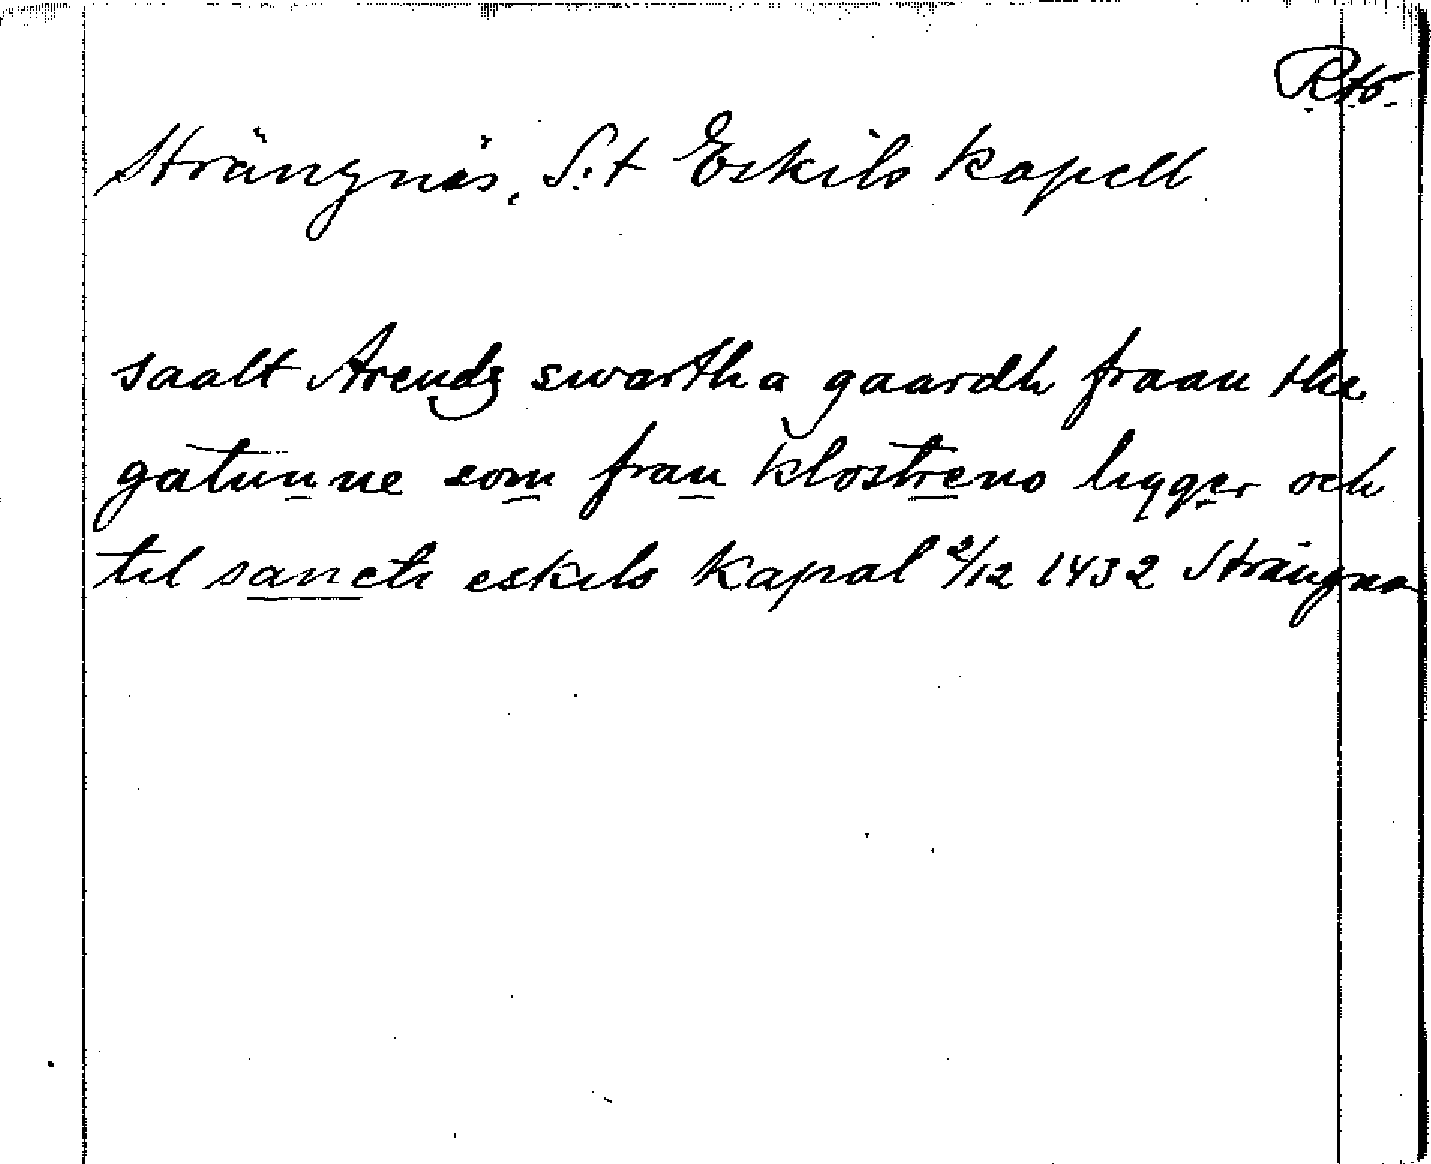 Strängnäs, S:t Eskils kapell
saalt Arendz swartha gaardh fraan the
gatunne som fran klostreno ligger och
til sancti eskils kapal 2/12 1432 Strängnä